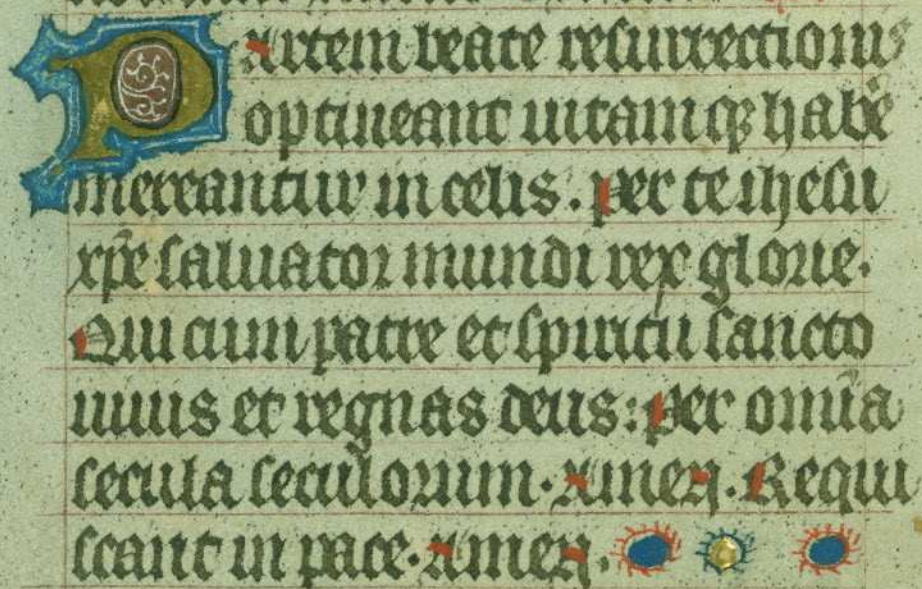 Partem beate resurrectionis
optineant uitamq habe
mereantur in celis. per te ihesu
xpe saluator mundi rex glorie.
Qui cum patre et spiritu sancto
uiuis et regnas deus: per omia
secula seculorum. Amen. Requi
scant in pace. Amen.